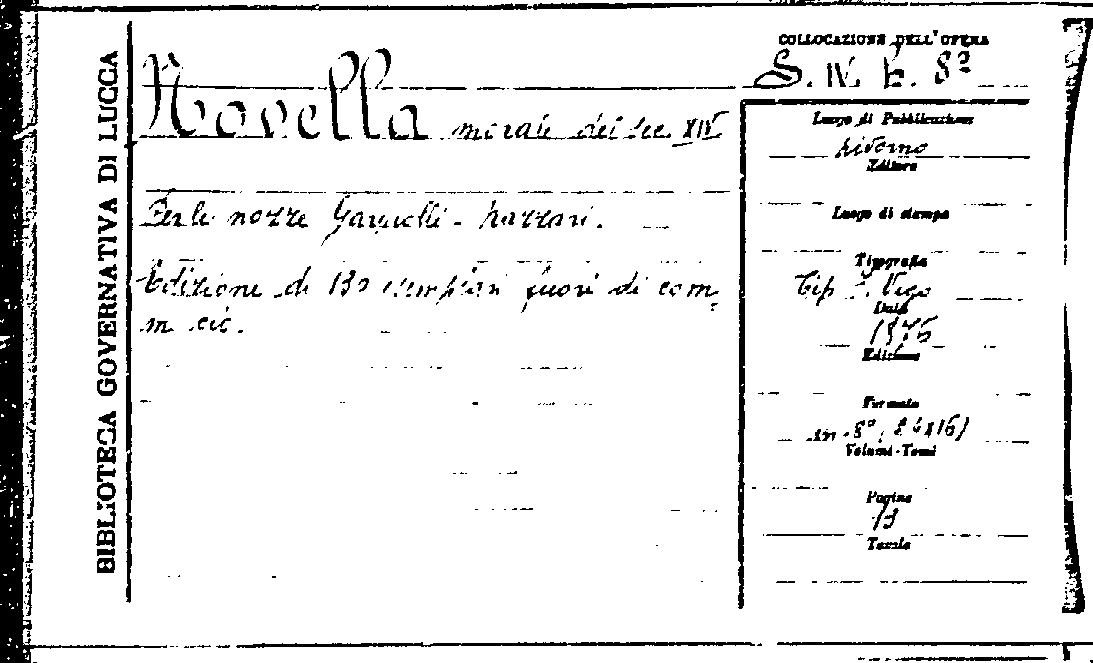 BIBLIOTECA GOVERNATIVA DI LUCCA
Novella morale del sec. XIV
Per le nozze
Edizione di 130 esemplari fuori di com-
mercio.
COLLOCAZIONE DELL'OPERA
S. IV. 8º
Luogo di Pubblicazione
Livorno
Editore
Luogo di stampa
Tipografia
Tip. F. Vigo
Data
1876
Edizione
Formato
in-8º, (24x16)
Volumi-Tomi
Pagine
13
Tavole